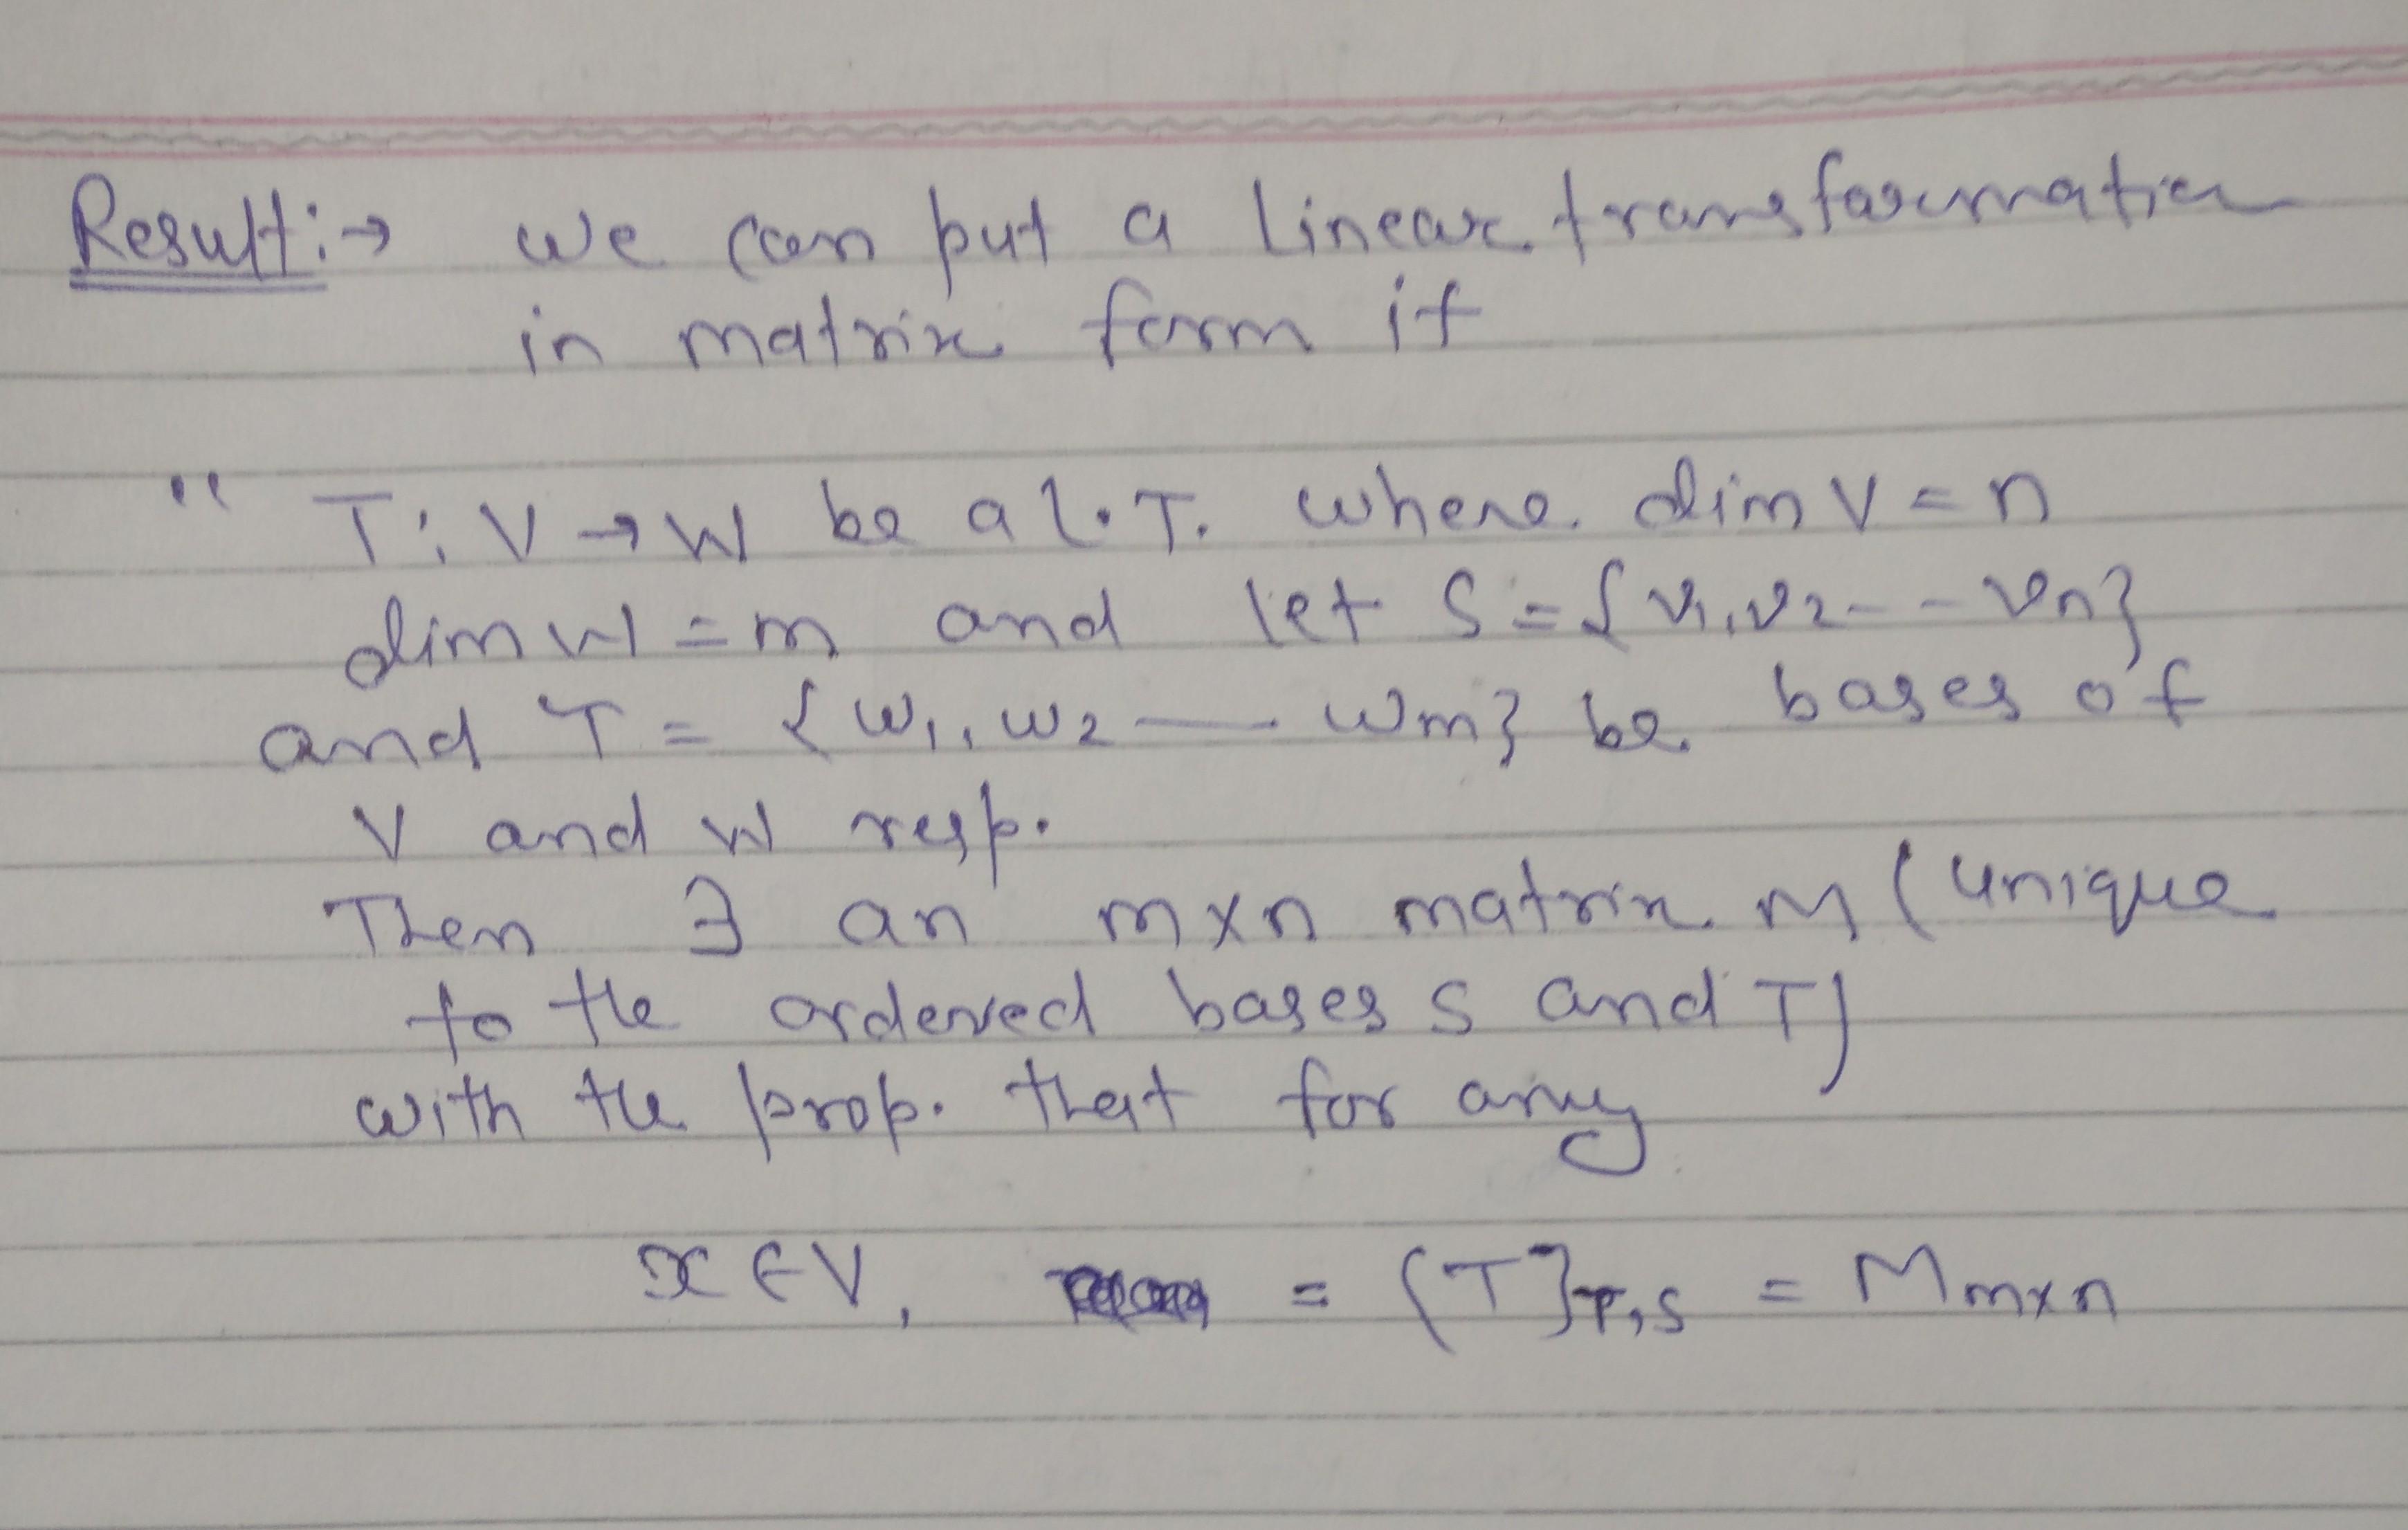 Result:→ we can put a linear transformation
in matrix form if
" T: V → W be a L.T. where dim V = n
dim W = m and let S = {v1, v2 - - vn}
and T = {w1, w2 — wm} be bases of
V and W resp.
Then ∃ an mxn matrix M (unique
to the ordered bases S and T)
with the prop. that for any
x ∈ V, = [T]T,S = M mxn